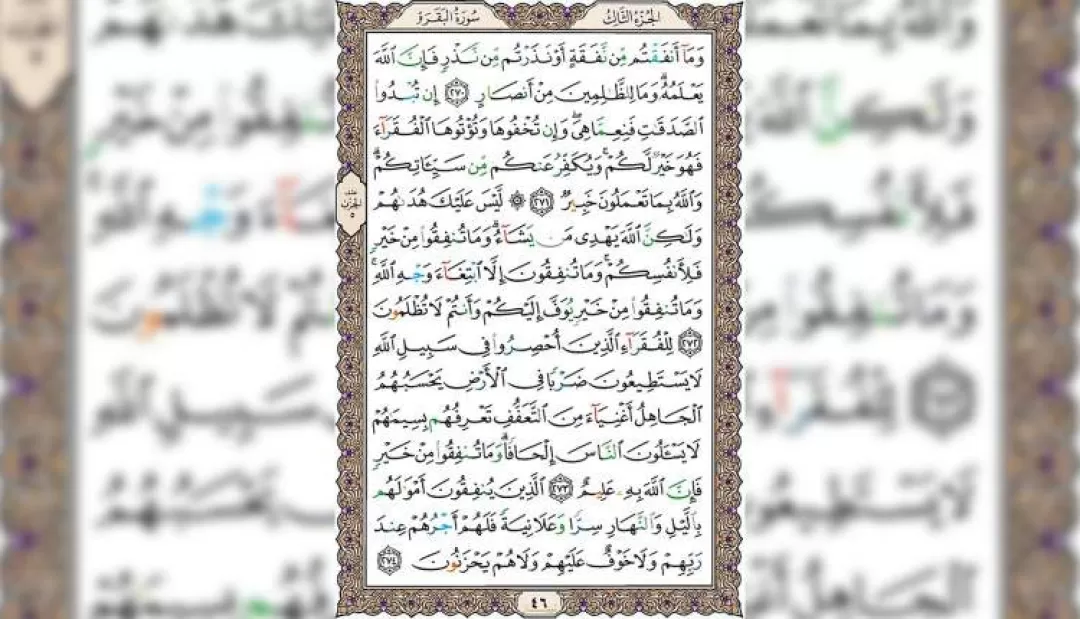 الجُزْءُ الثَّالِثُ
سُورَةُ البَقَرَةِ
وَمَآ أَنفَقْتُم مِّن نَّفَقَةٍ أَوْ نَذَرْتُم مِّن نَّذْرٍ فَإِنَّ ٱللَّهَ
يَعْلَمُهُۥ ۗ وَمَا لِلظَّٰلِمِينَ مِنْ أَنصَارٍ ٢٧٠ إِن تُبْدُوا۟
ٱلصَّدَقَٰتِ فَنِعِمَّا هِىَ ۖ وَإِن تُخْفُوهَا وَتُؤْتُوهَا ٱلْفُقَرَآءَ
فَهُوَ خَيْرٌ لَّكُمْ ۚ وَيُكَفِّرُ عَنكُم مِّن سَيِّـَٔاتِكُمْ ۗ
وَٱللَّهُ بِمَا تَعْمَلُونَ خَبِيرٌ ٢٧١ ۞ لَّيْسَ عَلَيْكَ هُدَىٰهُمْ
وَلَٰكِنَّ ٱللَّهَ يَهْدِى مَن يَشَآءُ ۗ وَمَا تُنفِقُوا۟ مِنْ خَيْرٍ
فَلِأَنفُسِكُمْ ۚ وَمَا تُنفِقُونَ إِلَّا ٱبْتِغَآءَ وَجْهِ ٱللَّهِ ۚ
وَمَا تُنفِقُوا۟ مِنْ خَيْرٍ يُوَفَّ إِلَيْكُمْ وَأَنتُمْ لَا تُظْلَمُونَ
٢٧٢ لِلْفُقَرَآءِ ٱلَّذِينَ أُحْصِرُوا۟ فِى سَبِيلِ ٱللَّهِ
لَا يَسْتَطِيعُونَ ضَرْبًا فِى ٱلْأَرْضِ يَحْسَبُهُمُ
ٱلْجَاهِلُ أَغْنِيَآءَ مِنَ ٱلتَّعَفُّفِ تَعْرِفُهُم بِسِيمَٰهُمْ
لَا يَسْـَٔلُونَ ٱلنَّاسَ إِلْحَافًا ۗ وَمَا تُنفِقُوا۟ مِنْ خَيْرٍ
فَإِنَّ ٱللَّهَ بِهِۦ عَلِيمٌ ٢٧٣ ٱلَّذِينَ يُنفِقُونَ أَمْوَٰلَهُم
بِٱلَّيْلِ وَٱلنَّهَارِ سِرًّا وَعَلَانِيَةً فَلَهُمْ أَجْرُهُمْ عِندَ
رَبِّهِمْ وَلَا خَوْفٌ عَلَيْهِمْ وَلَا هُمْ يَحْزَنُونَ ٢٧٤
٤٦